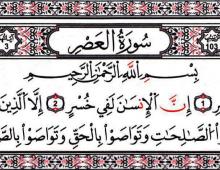 سُورَةُ العَصْرِ
بِسْمِ اللَّهِ الرَّحْمَنِ الرَّحِيمِ
1 إِنَّ الْإِنسَنَ لَفِي خُسْرٍ 2 إِلَّا الَّذِينَ
الصَّلِحَتِ وَتَوَاصَوْا بِالْحَقِّ وَتَوَاصَوْا